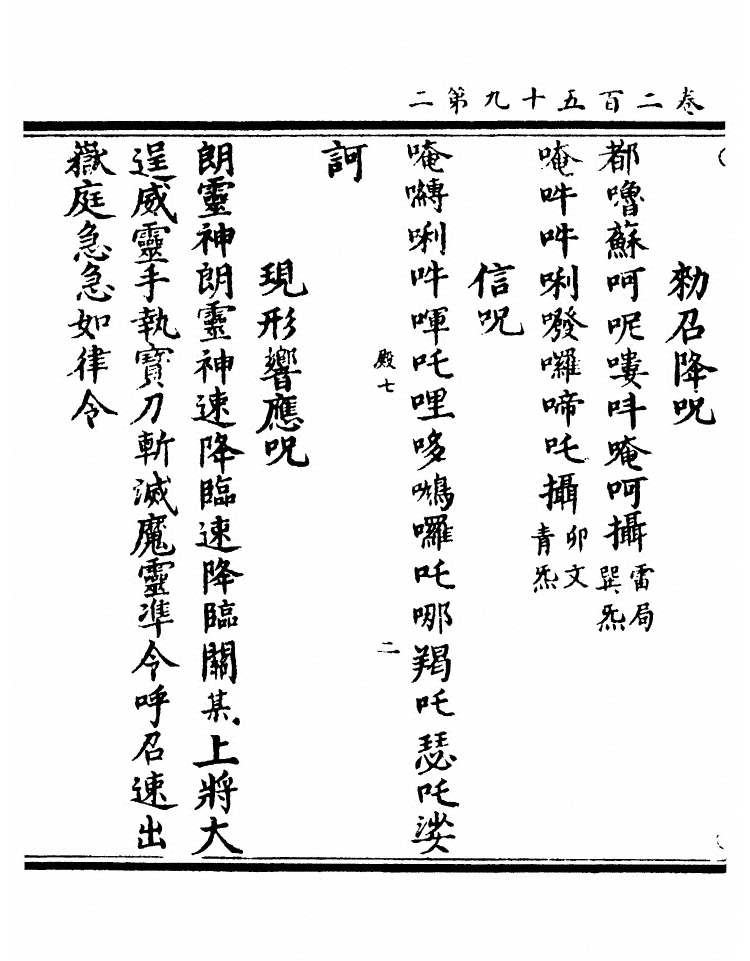 卷二百五十九第二
勑召降呪
都嚕蘇呵呢嘍吽唵呵攝雷局巽炁
唵吽吽唎㗶囉啼吒攝卯文青炁
信呪
唵囀唎吽㖶吒哩哆囉吒哪羯吒瑟吒娑
訶
殿七
二
現形響應呪
朗靈神朗靈神速降臨速降臨關某上將大
逞威靈手執寶刀斬滅魔靈準令呼召速出
嶽庭急急如律令